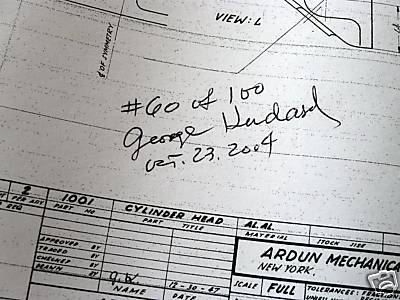 VIEW: L
℄ OF SYMMETRY
#60 of 100
George
Oct. 23. 2004
2 1001 CYLINDER HEAD AL AL.
PER ASY PART NO PART TITLE MATERIAL STOCK SIZE
REQ
APPROVED BY
TRACED BY
CHECKED BY
DRAWN BY
NAME DATE
12-30-67
ARDUN MECHANICA
NEW YORK.
SCALE FULL TOLERANCES:
UNLESS